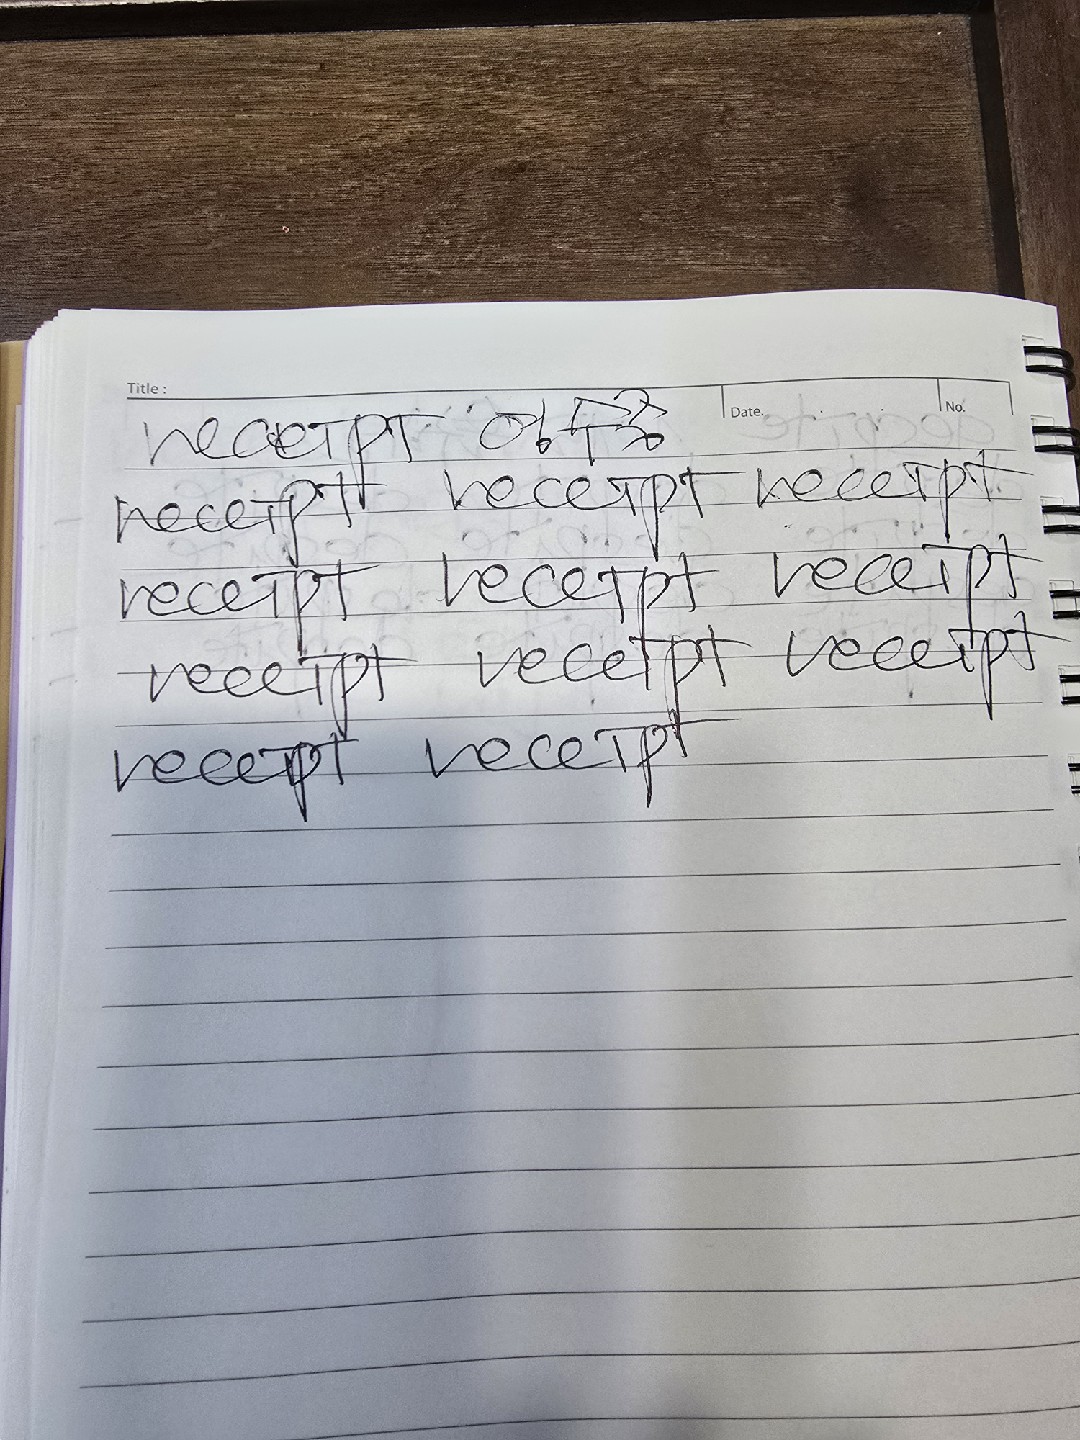 Title :
Date.
No.
receipt 영수증
receipt receipt receipt
receipt receipt receipt
receipt receipt receipt
receipt receipt